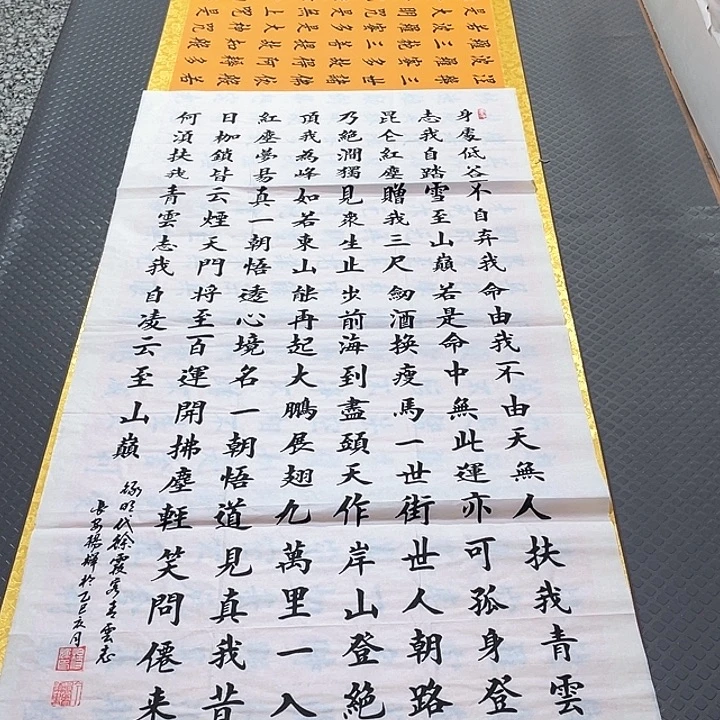 身處低谷不自弃我命由我不由天無人扶我青雲
志我自踏雪至山巔若是命中無此運亦可孤身登
昆仑紅塵贈我三尺劒酒換瘦馬一世街世人朝路
乃絕澗獨見衆生止步前海到盡頭天作岸山登絕
頂我為峰如若東山能再起大鵬展翅九萬里一入
紅塵夢易真一朝悟透心境名一朝悟道見真我昔
日枷鎖皆云煙天門將至百運開拂塵輕笑問僊来
何須扶我青雲志我自凌云至山巔
録明代徐霞客青雲志
長安楊輝於乙巳亥月